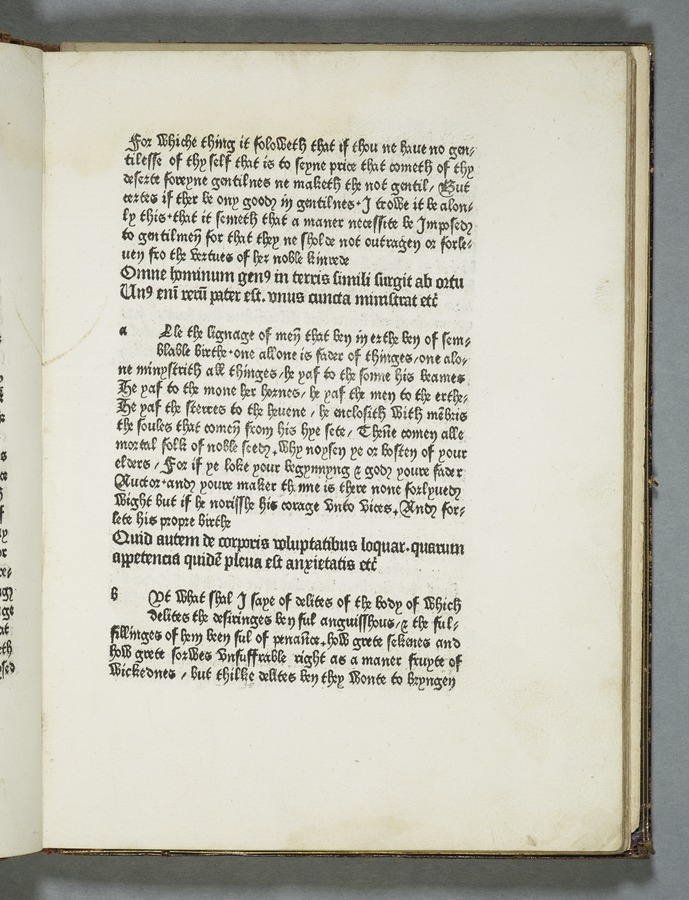 For whiche thing it foloweth that if thou ne haue no gen⸗
tilesse of thy self that is to seyne price that cometh of thy
deserte foreyne gentilnes ne maketh the not gentil / But
certes if ther be ony good in gentilnes· I trowe it be alon⸗
ly this· that it semeth that a maner necessite be Imposed
to gentilmen for that they ne sholde not outragen or forle⸗
uen fro the vertues of her noble kinrede
Omne hominum genꝰ in terris simili surgit ab ortu
Unꝰ eni͂ reru͂ pater est. vnus cuncta ministrat etc̃
a Lle the lignage of men that ben in erthe ben of sem⸗
blable birthe· one allone is fader of thinges / one alo⸗
ne minystrith all thinges / he yaf to the sonne his beames
He yaf to the mone her hornes / he yaf the men to the erthe⸗
He yaf the sterres to the heuene / he enclosith with me͂bris
the soules that comen from his hye sete / The͂ne comen alle
mortal folk of noble seed. Why noysen ye or bosten of your
elders / For if ye loke your begynnyng & god youre fader
Auctor· and youre maker thenne is there none forlyued
wight but if he norisshe his corage vnto vices. And for⸗
lete his propre birthe
Quid autem de corporis voluptatibus loquar. quarum
appetencia quide͂ plena est anxietatis etc̃
b Ut what shal I saye of delites of the body of which
delites the desiringes ben ful anguisshous / & the ful⸗
fillinges of hem been ful of penau͂ce. how grete sekenes and
how grete sorwes vnsuffrable right as a maner fruyte of
wickednes / but thilke delites ben they wonte to bryngen